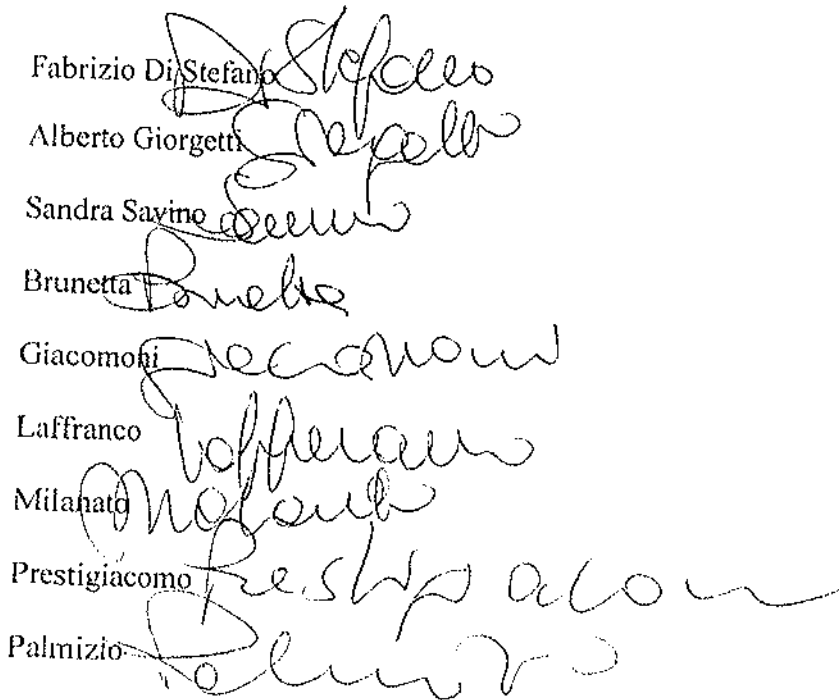 Fabrizio Di Stefano Di Stefano
Alberto Giorgetti Giorgetti
Sandra Savino Savino
Brunetta Brunetta
Giacomoni Giacomoni
Laffranco Laffranco
Milanato Milanato
Prestigiacomo Prestigiacomo
Palmizio Palmizio